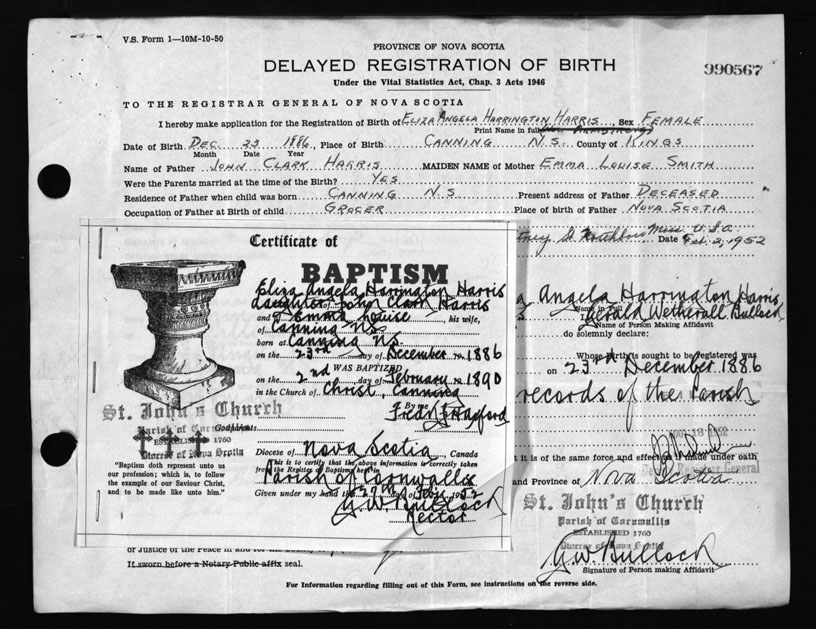 V.S. Form 1—10M-10-50
PROVINCE OF NOVA SCOTIA
DELAYED REGISTRATION OF BIRTH
990567
Under the Vital Statistics Act, Chap. 3 Acts 1946
TO THE REGISTRAR GENERAL OF NOVA SCOTIA
I hereby make application for the Registration of Birth of ELIZA ANGELA HARRINGTON HARRIS, Sex FEMALE
Print Name in full
Date of Birth DEC. 23 1886, Place of Birth CANNING N.S. County of KINGS
Month Date Year
Name of Father JOHN CLARK HARRIS MAIDEN NAME of Mother EMMA LOUISE SMITH
Were the Parents married at the time of Birth? YES
Residence of Father when child was born CANNING N.S Present address of Father DECEASED
Occupation of Father at Birth of child GROCER Place of birth of Father NOVA SCOTIA
U.S.A
Date Feb. 2, 1952
Certificate of
BAPTISM
Eliza Angela Harrington Harris
daughter of John Clark Harris
and Emma Louise, his wife,
of Canning N.S.
born at Canning N.S.
on the 23rd day of December 1886
WAS BAPTIZED
on the 2nd day of February 1890
in the Church of Christ, Canning
By me
Godparents
Diocese of Nova Scotia, Canada
This is to certify that the above information is correctly taken
from the Register of Baptisms kept in
Parish of Cornwallis
Given under my hand the 27th day of Feb. 1952
G.W. Bullock
Rector
St. John's Church
Parish of Cornwallis
ESTABLISHED 1760
Diocese of Nova Scotia
"Baptism doth represent unto us
our profession; which is, to follow
the example of our Saviour Christ,
and to be made like unto him."
Angela Harrington Harris
Name in Full
Gerald Wetherall Bullock
Name of Person Making Affidavit
do solemnly declare:
Whose Birth is sought to be registered was
on 23rd December 1886
records of the Parish
t it is of the same force and effect as if made under oath
Registrar General
and Province of Nova Scotia
St. John's Church
Parish of Cornwallis
ESTABLISHED 1760
Diocese of Nova Scotia
G W Bullock
Signature of Person making Affidavit
or Justice of the Peace in and for the
If sworn before a Notary Public affix seal.
For Information regarding filling out of this Form, see instructions on the reverse side.